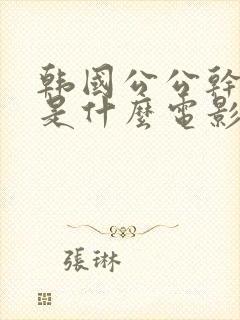 韩國公公幹
是什麼電影
張琳